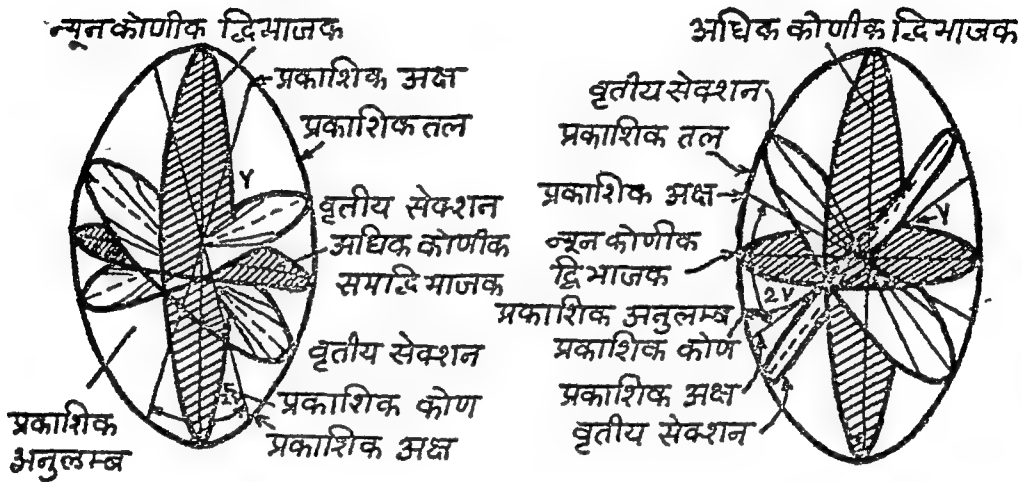 न्यून कोणीक द्विभाजक
प्रकाशिक अक्ष
प्रकाशिक तल
γ
वृतीय सेक्शन
अधिक कोणीक
समद्विभाजक
वृतीय सेक्शन
प्रकाशिक कोण
प्रकाशिक अक्ष
प्रकाशिक
अनुलम्ब
अधिक कोणीक द्विभाजक
वृतीय सेक्शन
प्रकाशिक तल
प्रकाशिक अक्ष
न्यून कोणीक
द्विभाजक
2V
प्रकाशिक अनुलम्ब
प्रकाशिक कोण
प्रकाशिक अक्ष
वृतीय सेक्शन